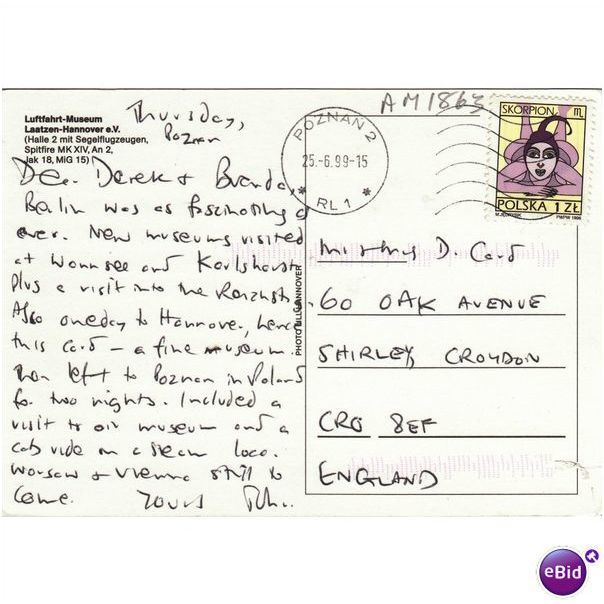 Luftfahrt-Museum
Laatzen-Hannover e.V.
(Halle 2 mit Segelflugzeugen,
Spitfire MK XIV, An 2,
Jak 18, MiG 15)
Thursday,
Poznan
Dear Derek & Brenda,
Berlin was as fascinating as
ever. New museums visited
at Wannsee and Karlshorst
plus a visit into the
Also one day to Hannover, hence
this card – a fine museum.
Then left to Poznan in Poland
for two nights. Included a
visit to air museum and a
cab ride on a steam loco.
Warsaw & Vienna still to
come. Yours
PHOTO HANNOVER
AM1863
POZNAŃ 2
25.-6.99-15
* RL 1 *
SKORPION
POLSKA 1 ZŁ
PWPW 1996
D. Card
60 OAK AVENUE
SHIRLEY CROYDON
CR0 8EF
ENGLAND
eBid